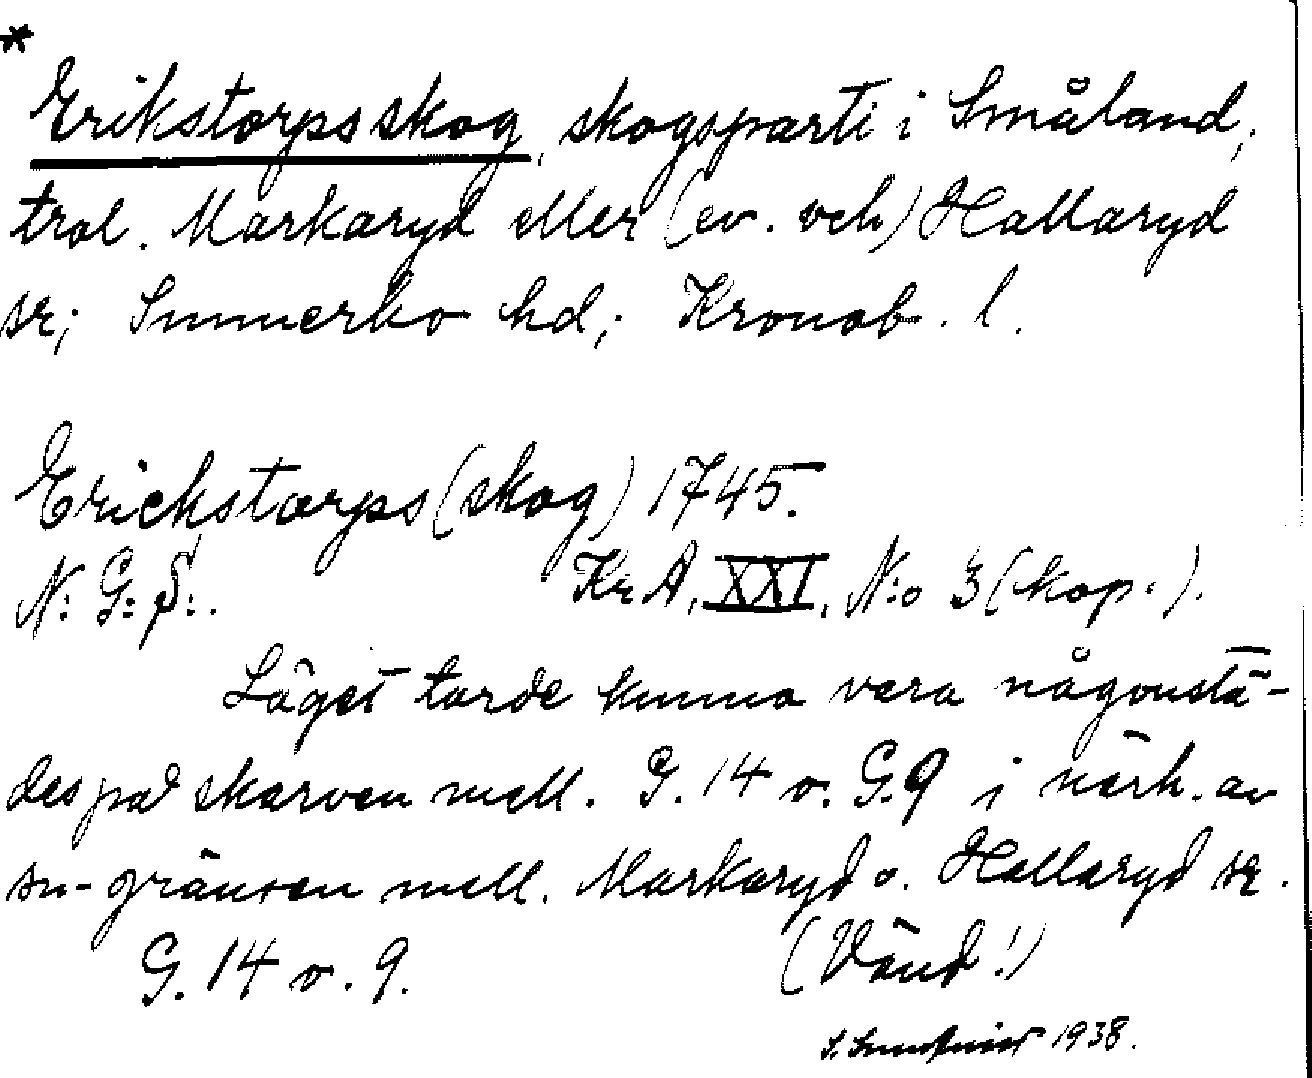 *
Erikstorpsskog, skogsparti i Småland,
trol. Markaryd eller (ev. och) Hallaryd
sr; Sunnerbo hd; Kronob. l.
Erickstorps (skog) 1745.
N: G: S:. Kr A, XXI, N:o 3 (kop.).
Läget torde kunna vara någonstä-
des på skarven mell. G. 14 o. G.9 i närh. av
sn-gränsen mell. Markaryd o. Hallaryd sr.
G. 14 o. 9. (Vänd!)
S. 1938.